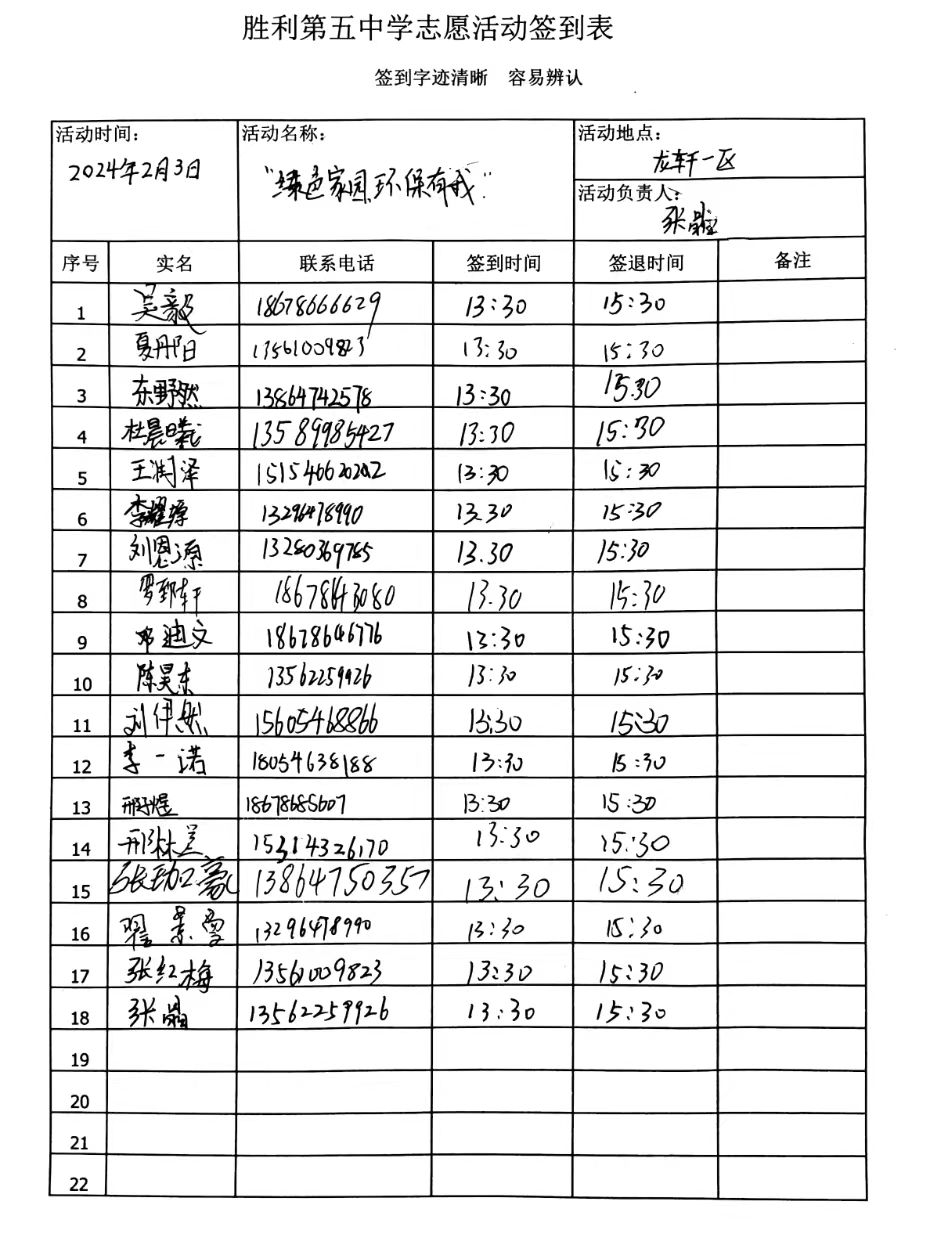 胜利第五中学志愿活动签到表
签到字迹清晰 容易辨认
活动时间: 活动名称: 活动地点:
2024年2月3日 "绿色家园,环保有我". 龙轩一区
活动负责人:
张晶
序号 实名 联系电话 签到时间 签退时间 备注
1 吴毅 18678666629 13:30 15:30
2 夏丹阳 13561009823 13:30 15:30
3 东野然 13864742578 13:30 15:30
4 杜晨曦 13589985427 13:30 15:30
5 王润泽 15154662022 13:30 15:30
6 李耀 13296478990 13.30 15:30
7 刘恩源 13280369785 13.30 15:30
8 罗轩 18678643080 13.30 15:30
9 邓迪文 18678646776 13:30 15:30
10 陈昊东 13562259926 13:30 15:30
11 刘伊然 15605468866 13:30 15:30
12 李一诺 18054638188 13:30 15:30
13 邢煜 18678685607 13:30 15:30
14 邢林 15314326170 13:30 15:30
15 张豪 13864750357 13:30 15:30
16 翟景雪 13296478990 13:30 15:30
17 张红梅 13561009823 13:30 15:30
18 张晶 13562259926 13:30 15:30
19
20
21
22